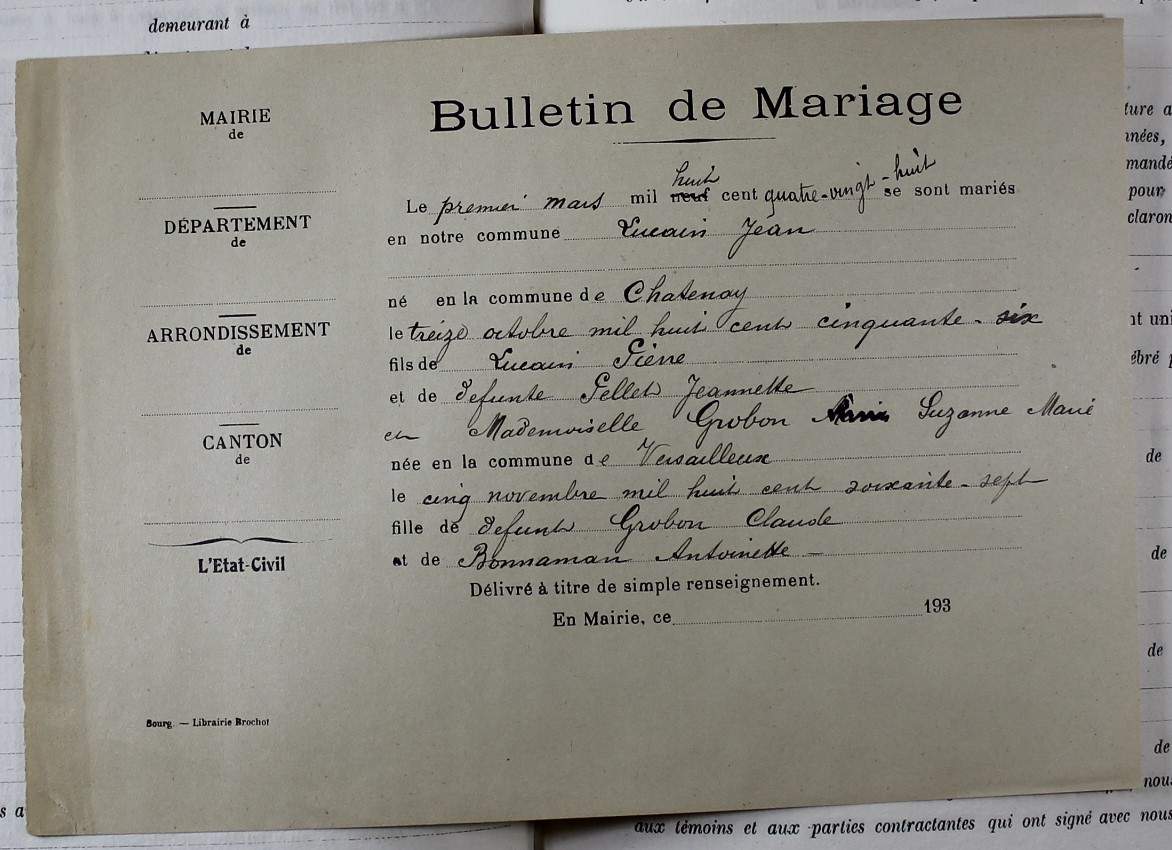 demeurant à
MAIRIE
de
DÉPARTEMENT
de
ARRONDISSEMENT
de
CANTON
de
L'Etat-Civil
Bourg. — Librairie Brochot
Bulletin de Mariage
huit
Le premier mars mil neuf cent quatre-vingt-huit se sont mariés
en notre commune Lucain Jean
né en la commune de Chatenay
le treize octobre mil huit cent cinquante-six
fils de Lucain Pierre
et de défunte Pellet Jeannette
et Mademoiselle Grobon Marie Suzanne Marie
née en la commune de Versailleux
le cinq novembre mil huit cent soixante-sept
fille de défunt Grobon Claude
et de Bonnaman Antoinette —
Délivré à titre de simple renseignement.
En Mairie, ce 193
ture a
nnées,
mandé
pour
claron
nt uni
ébré p
de
de
de
de
nous
s a
aux témoins et aux parties contractantes qui ont signé avec nous